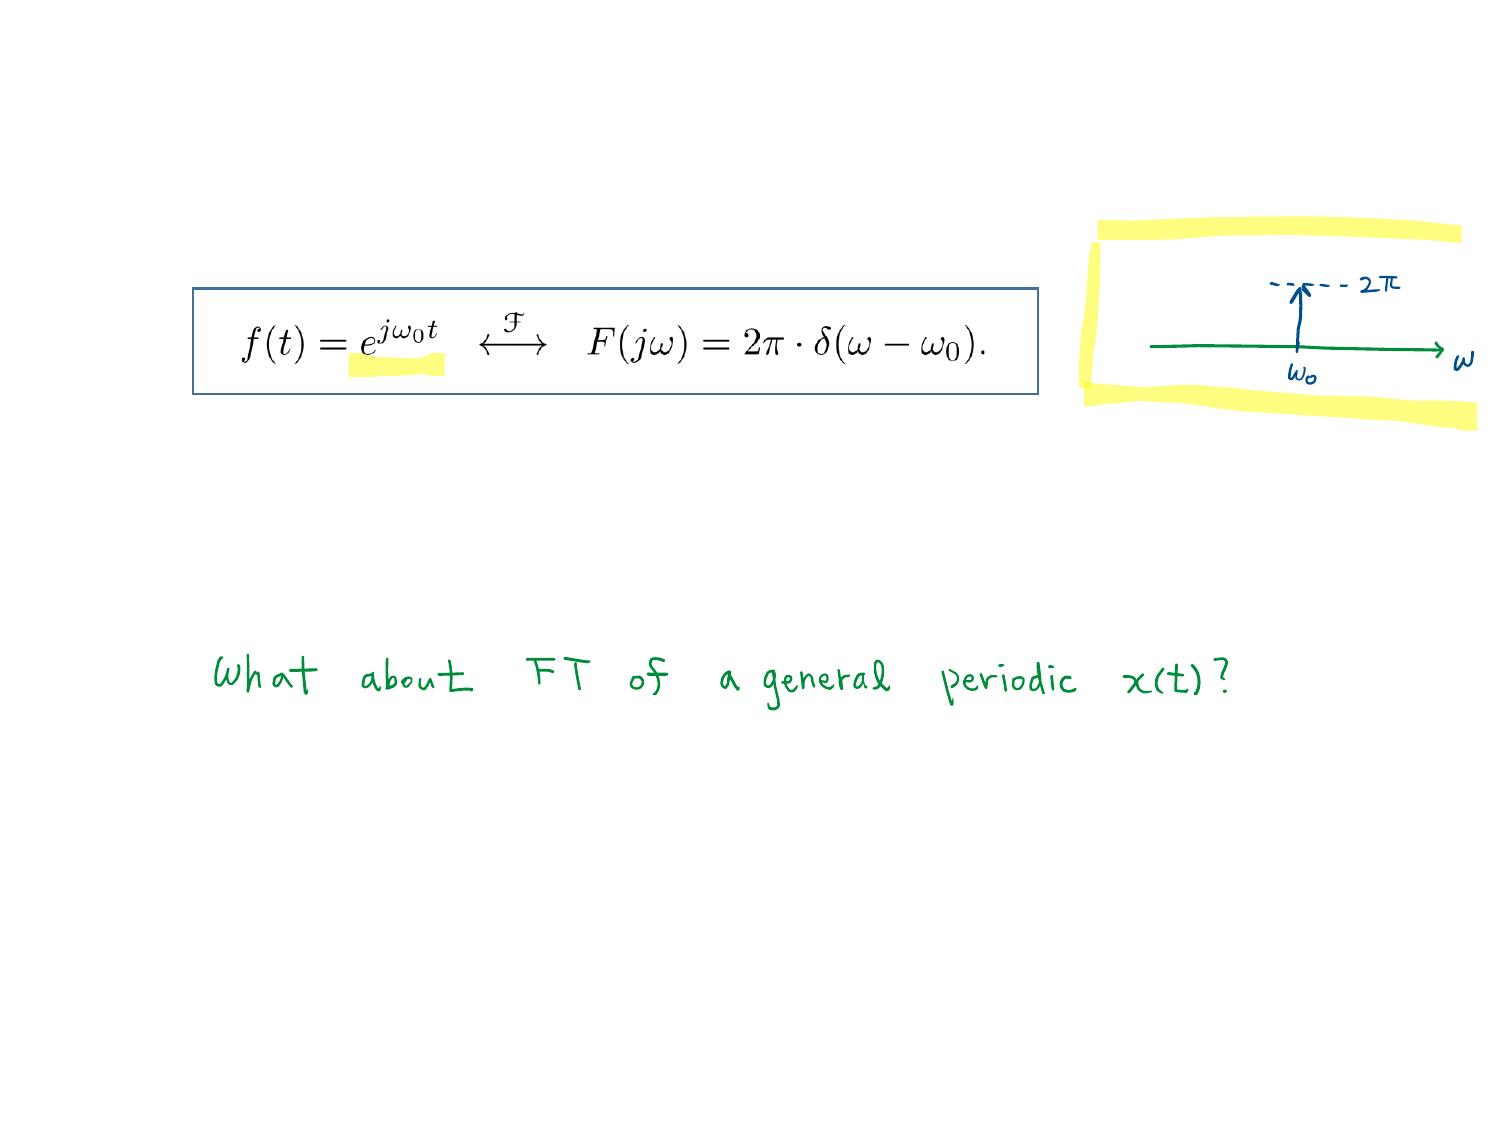 f(t) = e^{jω₀t} ⟷^ℱ F(jω) = 2π · δ(ω − ω₀).
2π
ω
ω₀
What about FT of a general periodic x(t)?